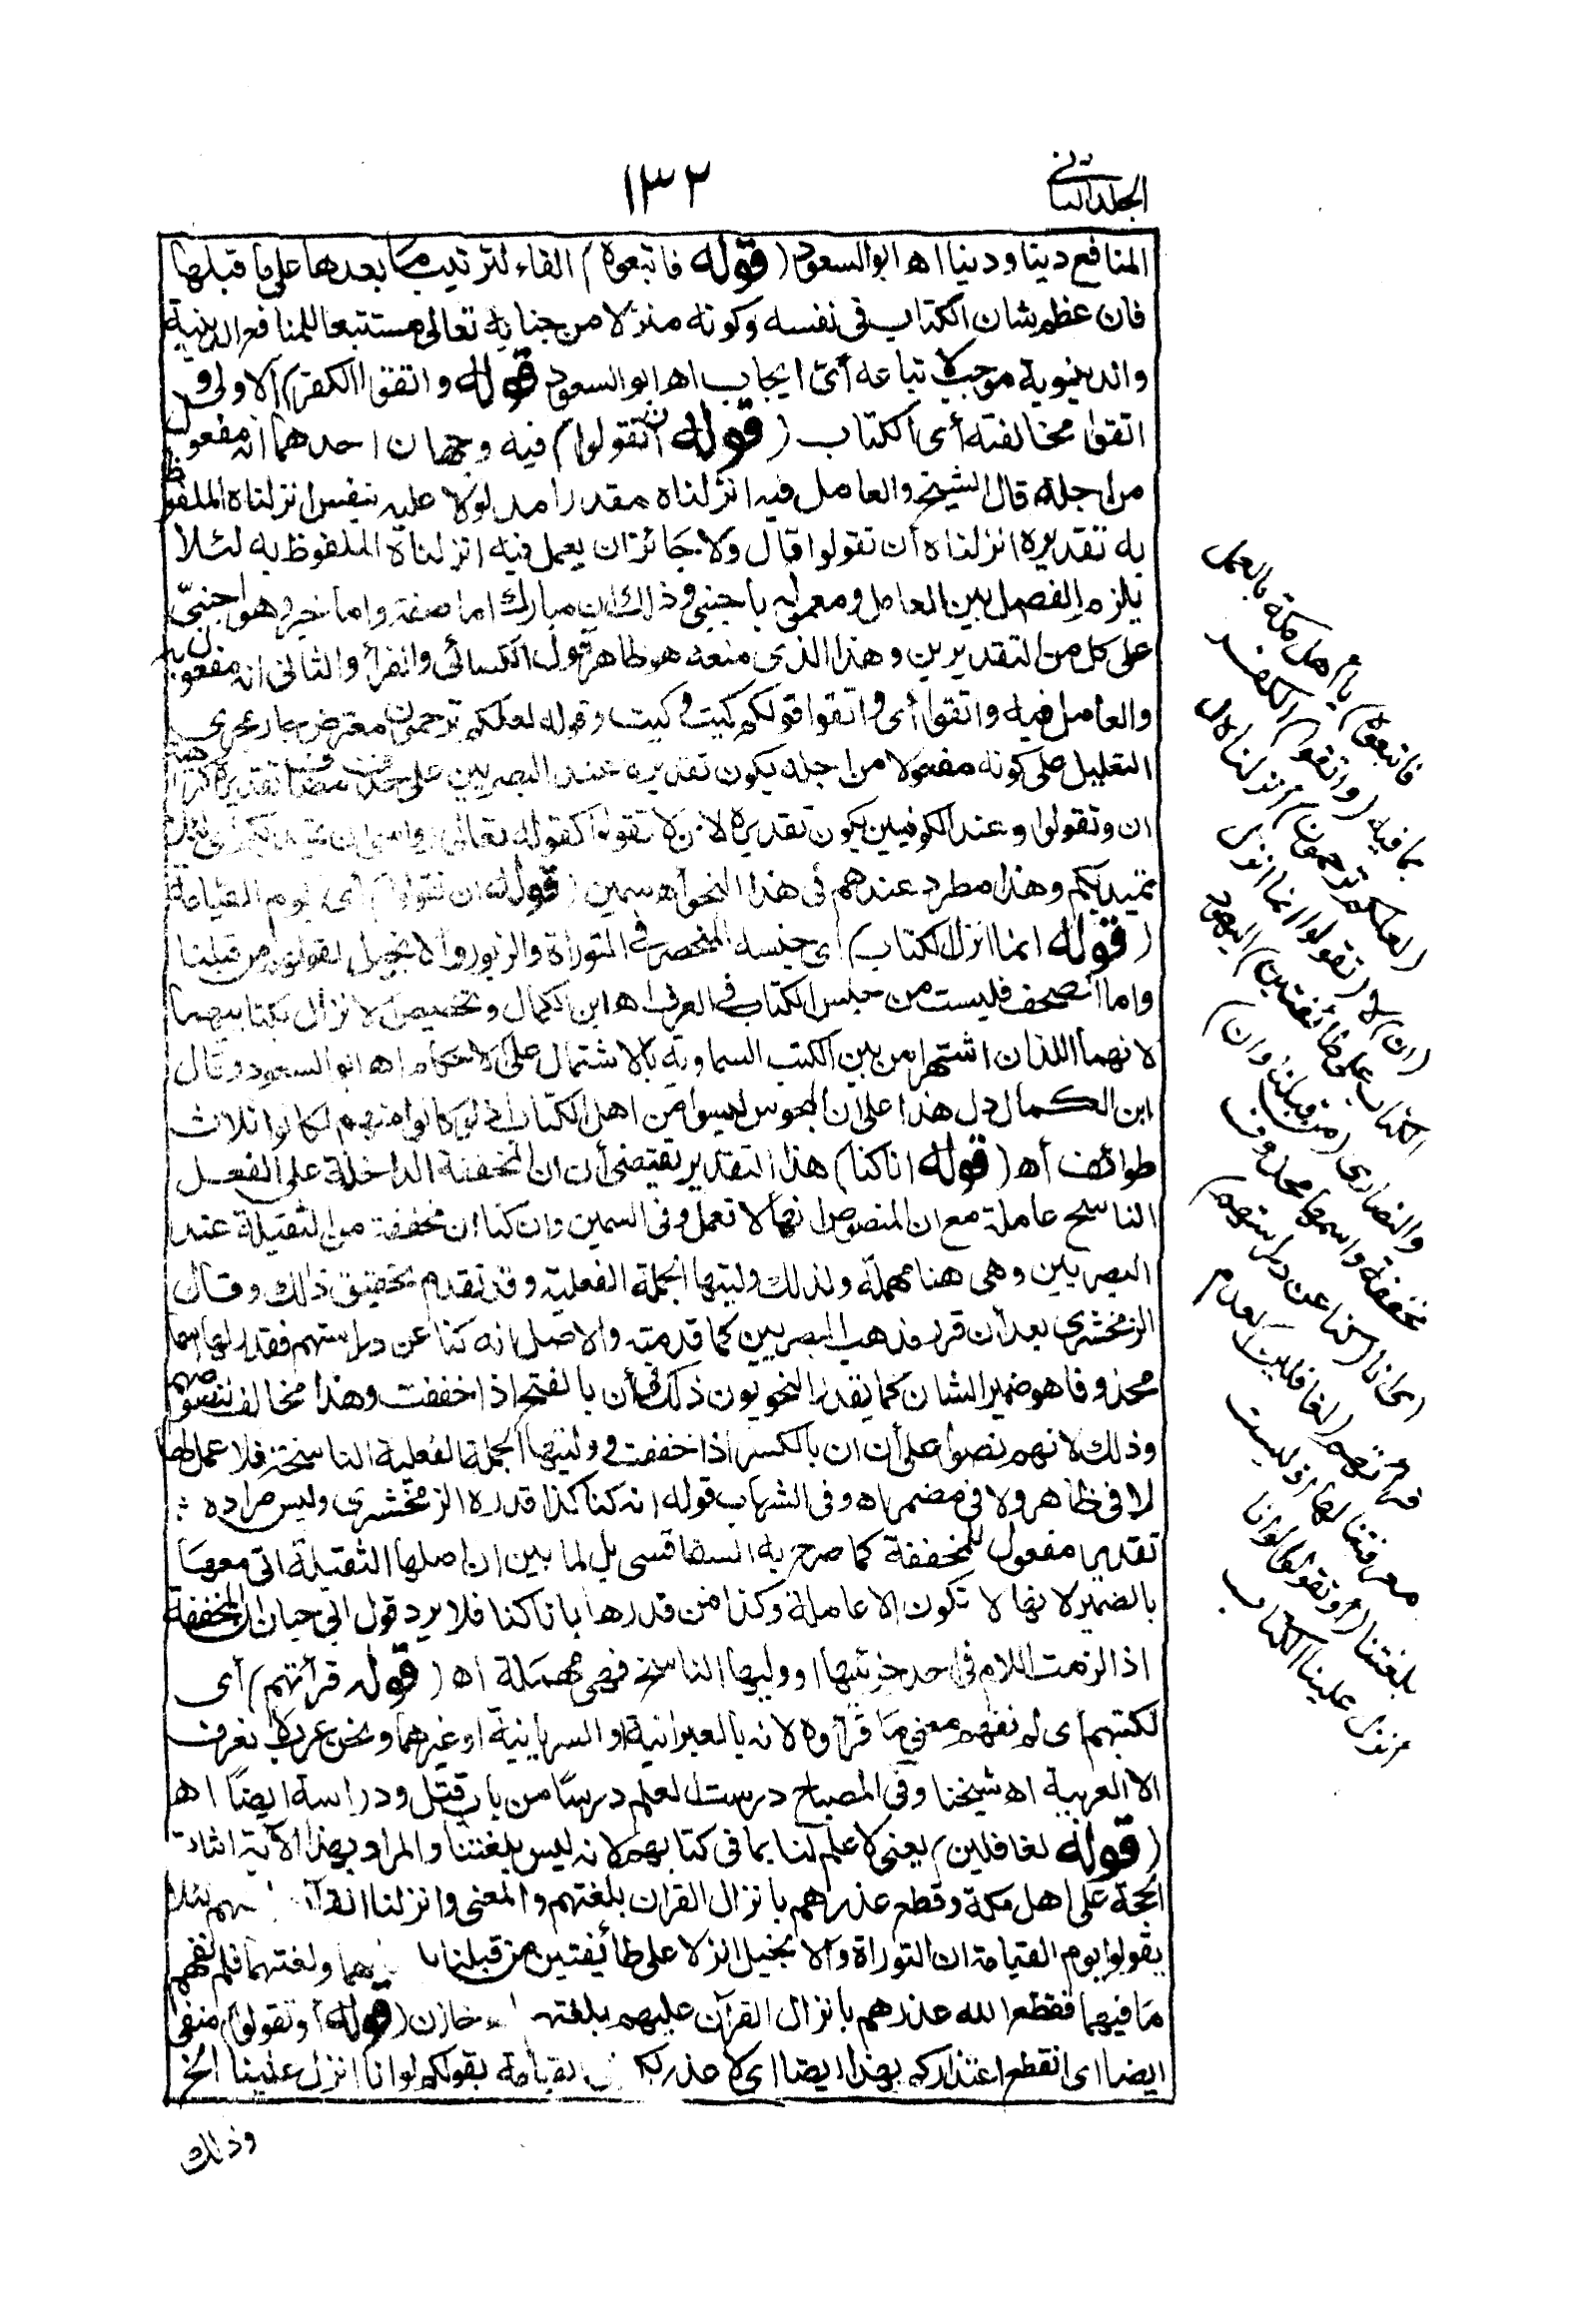 الجلد الثاني
١٣٢
المنافع دينا ودينا اه ابوالسعود (قوله فاتبعوه) الفاء لترتيب ما بعدها على ما قبلها
فان عظم شان الكتاب فى نفسه وكونه منزلا من جنابه تعالى مستتبعا للمنافع الدينية
والدنيوية موجب لاتباعه أىّ ايجاب اه ابو السعود قوله واتقوا الكفر) الاولى و
اتقوا مخالفته أى الكتاب (قوله ان تقولوا) فيه وجهان احدهما انه مفعول
من اجله قال الشيخ والعامل فيه انزلناه مقدرا مدلولا عليه بنفس انزلناه الملفوظ
به تقديره انزلناه أن تقولوا قال ولا جائز ان يعمل فيه انزلناه الملفوظ به لئلا
يلزم الفصل بين العامل ومعموله باجنبى وذلك ان مبارك اما صفة واما خبر وهو اجنبىّ
على كل من التقديرين وهذا الذى منعه هو ظاهر قول الكسائى والفرأ والثانى انه مفعول به
والعامل فيه واتقوا أى واتقوا قولكم كيت وكيت وقوله لعلكم ترحمون معترض جار مجرى
التعليل على كونه مفعولا من اجله يكون تقديره عند البصريين على حذف مضاف تقديره كراهة
ان تقولوا وعند الكوفيين يكون تقديره لان لا تقولوا كقوله تعالى رواسى ان تميد بكم أى لئلا
تميد بكم وهذا مطرد عندهم فى هذا النحو اه سمين (قوله ان تقولوا) أى يوم القيامة
(قوله انما انزل الكتاب) أى جنسه المنحصر فى التوراة والزبور والانجيل لقوله من قبلنا
واما الصحف فليست من جنس الكتاب فى العرف اه ابن الكمال وتخصيص الانزال بكتابيهما
لانهما اللذان اشتهرا من بين الكتب السماوية بالاشتمال على الاحكام اه ابو السعود وقال
ابن الكمال دل هذا على ان المجوس ليسوا من اهل الكتاب اذ لو كانوا منهم لكانوا ثلاث
طوائف أه (قوله انا كنا) هذا التقدير يقتضى أن ان المخففة الداخلة على الفعل
الناسخ عاملة مع ان المنصوص انها لا تعمل وفى السمين وان كنا ان مخففة من الثقيلة عند
البصريين وهى هنا مهملة ولذلك وليتها الجملة الفعلية وقد تقدم تحقيق ذلك وقال
الزمخشرى بعد أن قرر مذهب البصريين كما قدمته والاصل انه كنا عن دراستهم فقدر لها اسما
محذوفا هو ضمير الشان كما يقدر النحويون ذلك فى أن بالفتح اذا خففت وهذا مخالف لنصوصهم
وذلك لانهم نصوا على أن ان بالكسر اذا خففت ووليتها الجملة الفعلية الناسخة فلا عمل لها
لا فى ظاهر ولا فى مضمر اه وفى الشهاب قوله انه كنا كذا قدره الزمخشرى وليس مراده
تقدير مفعول للمخففة كما صرح به السفاقسى بل لما بين ان اصلها الثقيلة اتى معها
بالضمير لانها لا تكون الا عاملة وكذا من قدرها بانا كنا فلا يرد قول ابى حيان ان المخففة
اذا لزمت اللام فى احد جزئيها او وليها الناسخ فهى مهملة اه (قوله قرأتهم) أى
لكتبهم أى لم نفهم معنى ما قرأوه لانه بالعبرانية او السريانية او غيرهما ونحن عرب لا نعرف
الا العربية اه شيخنا وفى المصباح درست العلم درسًا من باب قتل ودراسة ايضًا اه
(قوله لغافلين) يعنى لا علم لنا بما فى كتابهم لانه ليس بلغتنا والمراد بهذا الآية اثبات
الحجة على اهل مكة وقطع عذرهم بانزال القران بلغتهم والمعنى وانزلنا القرآن لئلا
يقولوا يوم القيامة ان التوراة والانجيل انزلا على طائفتين من قبلنا ولغتهما فلم نفهم
ما فيهما فقطع الله عذرهم بانزال القرآن عليهم بلغتهم خازن (قوله أو تقولوا) منفى
ايضا اى انقطع اعتذاركم بهذا ايضا اى لا عذر لكم القيامة بقولكم لو انا انزل علينا الخ
وذلك
فاتبعوه) يا اهل مكة بالعمل
بما فيه (واتقوا) الكفر
(لعلكم ترحمون) انزلناه ل
(ان) لا (تقولوا انما انزل
الكتاب على طائفتين) اليهود
والنصارى (من قبلنا وان)
مخففة واسمها محذوف
اى انا (كنا عن دراستهم)
قراءتهم (لغافلين) لعدم
معرفتنا لها اذ ليست
بلغتنا (أو تقولوا لو انا
انزل علينا الكتاب